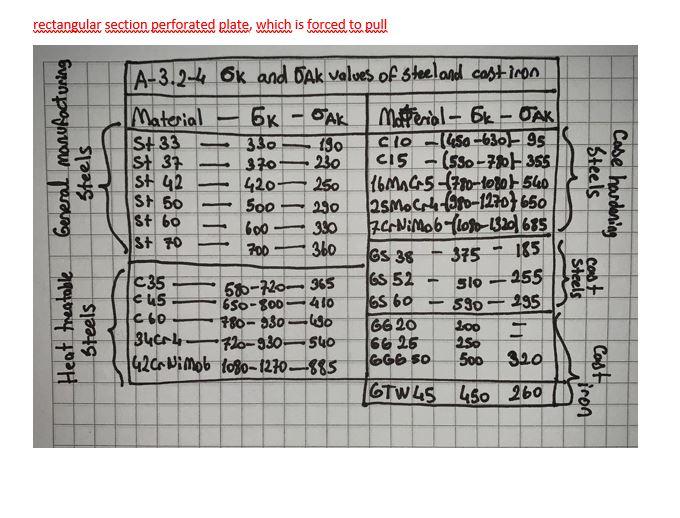 rectangular section perforated plate, which is forced to pull
A-3.2-4 σK and σAK values of steel and cast iron
General manufacturing Steels
Material — σK — σAK
St 33 — 330 — 190
St 37 — 370 — 230
St 42 — 420 — 250
St 50 — 500 — 290
St 60 — 600 — 330
St 70 — 700 — 360
Heat treatable Steels
C35 — 580-720 — 365
C45 — 650-800 — 410
C60 — 780-930 — 490
34Cr4 — 720-930 — 540
42CrNiMo6 1080-1270 — 885
Material — σK — σAK
C10 — (450-630) - 95
C15 — (590-780) - 355
16MnCr5 - (780-1080) - 540
25MoCr4 - (980-1270) 650
7CrNiMo6 - (1080-1320) 685
Case hardening Steels
GS 38 — 375 — 185
GS 52 — 510 — 255
GS 60 — 590 — 295
Cast Steels
GG20 200 —
GG 25 250 —
GGG 50 500 320
GTW45 450 260
Cast iron